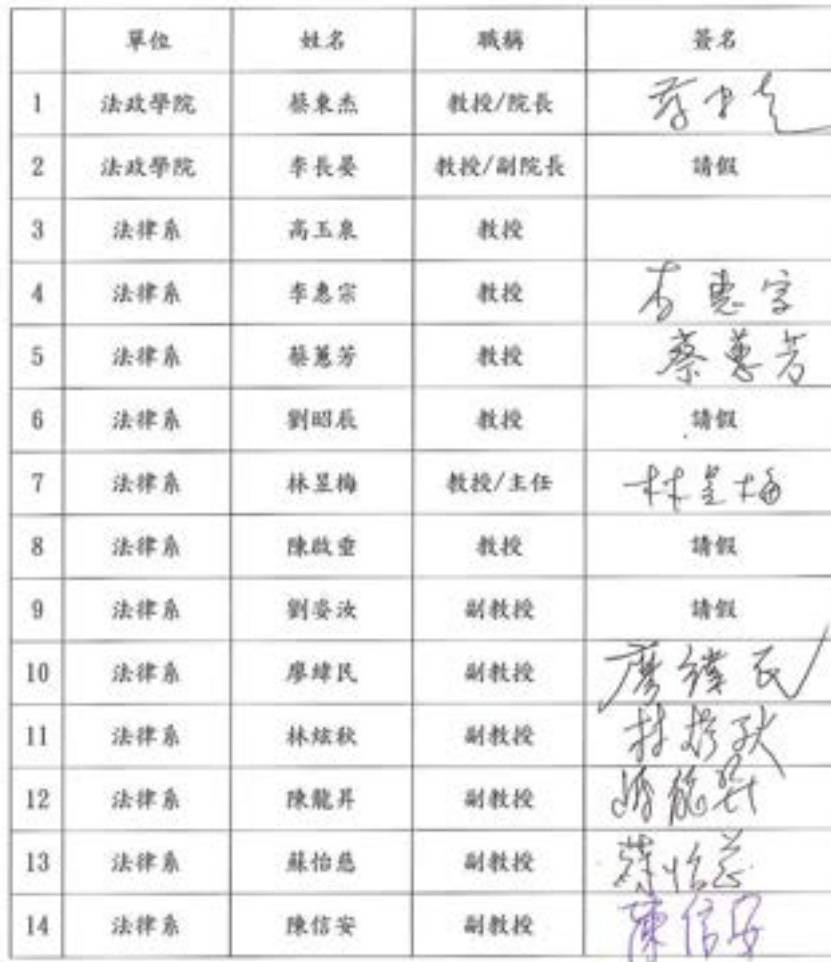 單位 姓名 職稱 簽名
1 法政學院 蔡東杰 教授/院長
2 法政學院 李長晏 教授/副院長 請假
3 法律系 高玉泉 教授
4 法律系 李惠宗 教授 李惠宗
5 法律系 蔡蕙芳 教授 蔡蕙芳
6 法律系 劉昭辰 教授 請假
7 法律系 林昱梅 教授/主任 林昱梅
8 法律系 陳啟垂 教授 請假
9 法律系 劉姿汝 副教授 請假
10 法律系 廖緯民 副教授 廖緯民
11 法律系 林炫秋 副教授 林炫秋
12 法律系 陳龍昇 副教授 陳龍昇
13 法律系 蘇怡慈 副教授 蘇怡慈
14 法律系 陳信安 副教授 陳信安